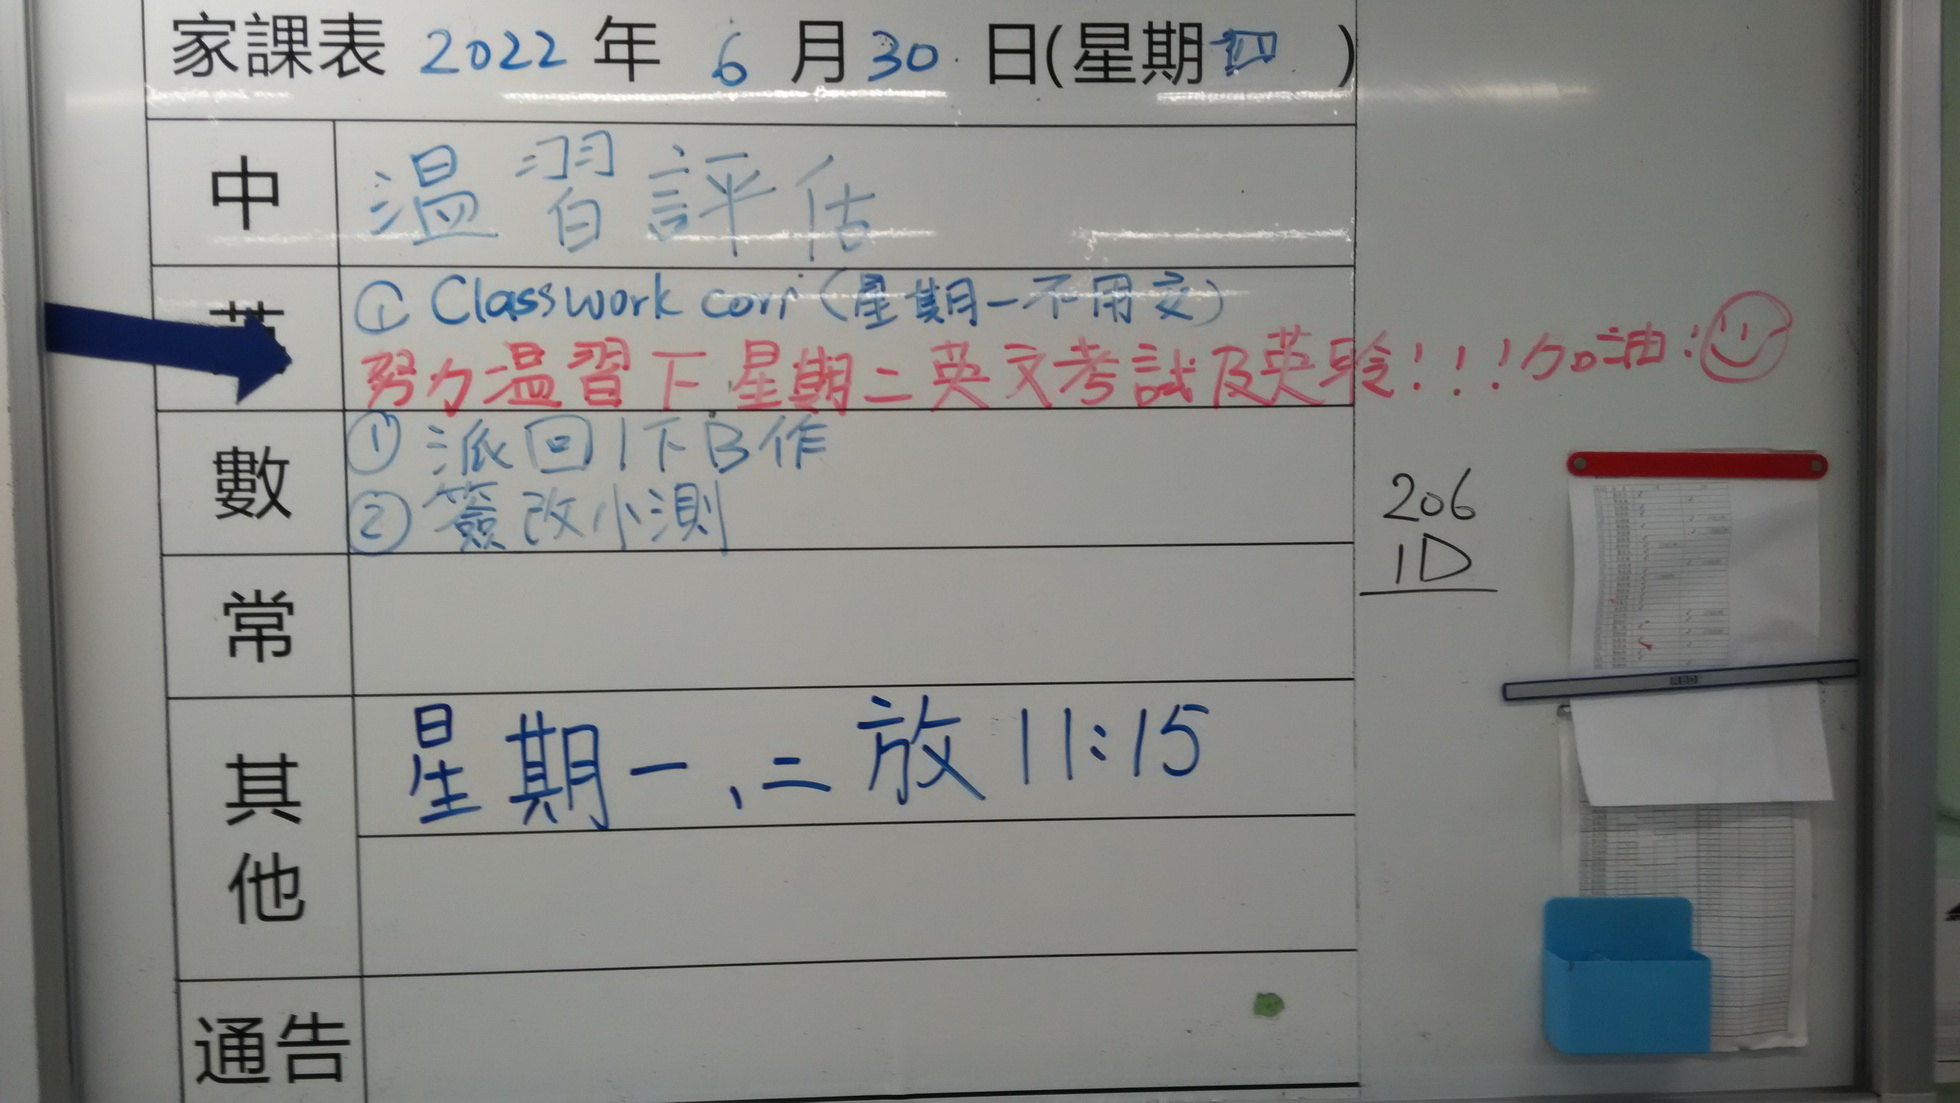 家課表 2022 年 6 月 30 日(星期四 )
中
温習評估
英
① Classwork corr (星期一不用交)
努力温習下星期二英文考試及英聆!!!加油!
數
① 派回1下B作
② 簽改小測
206
1D
常
其他
星期一、二放11:15
通告